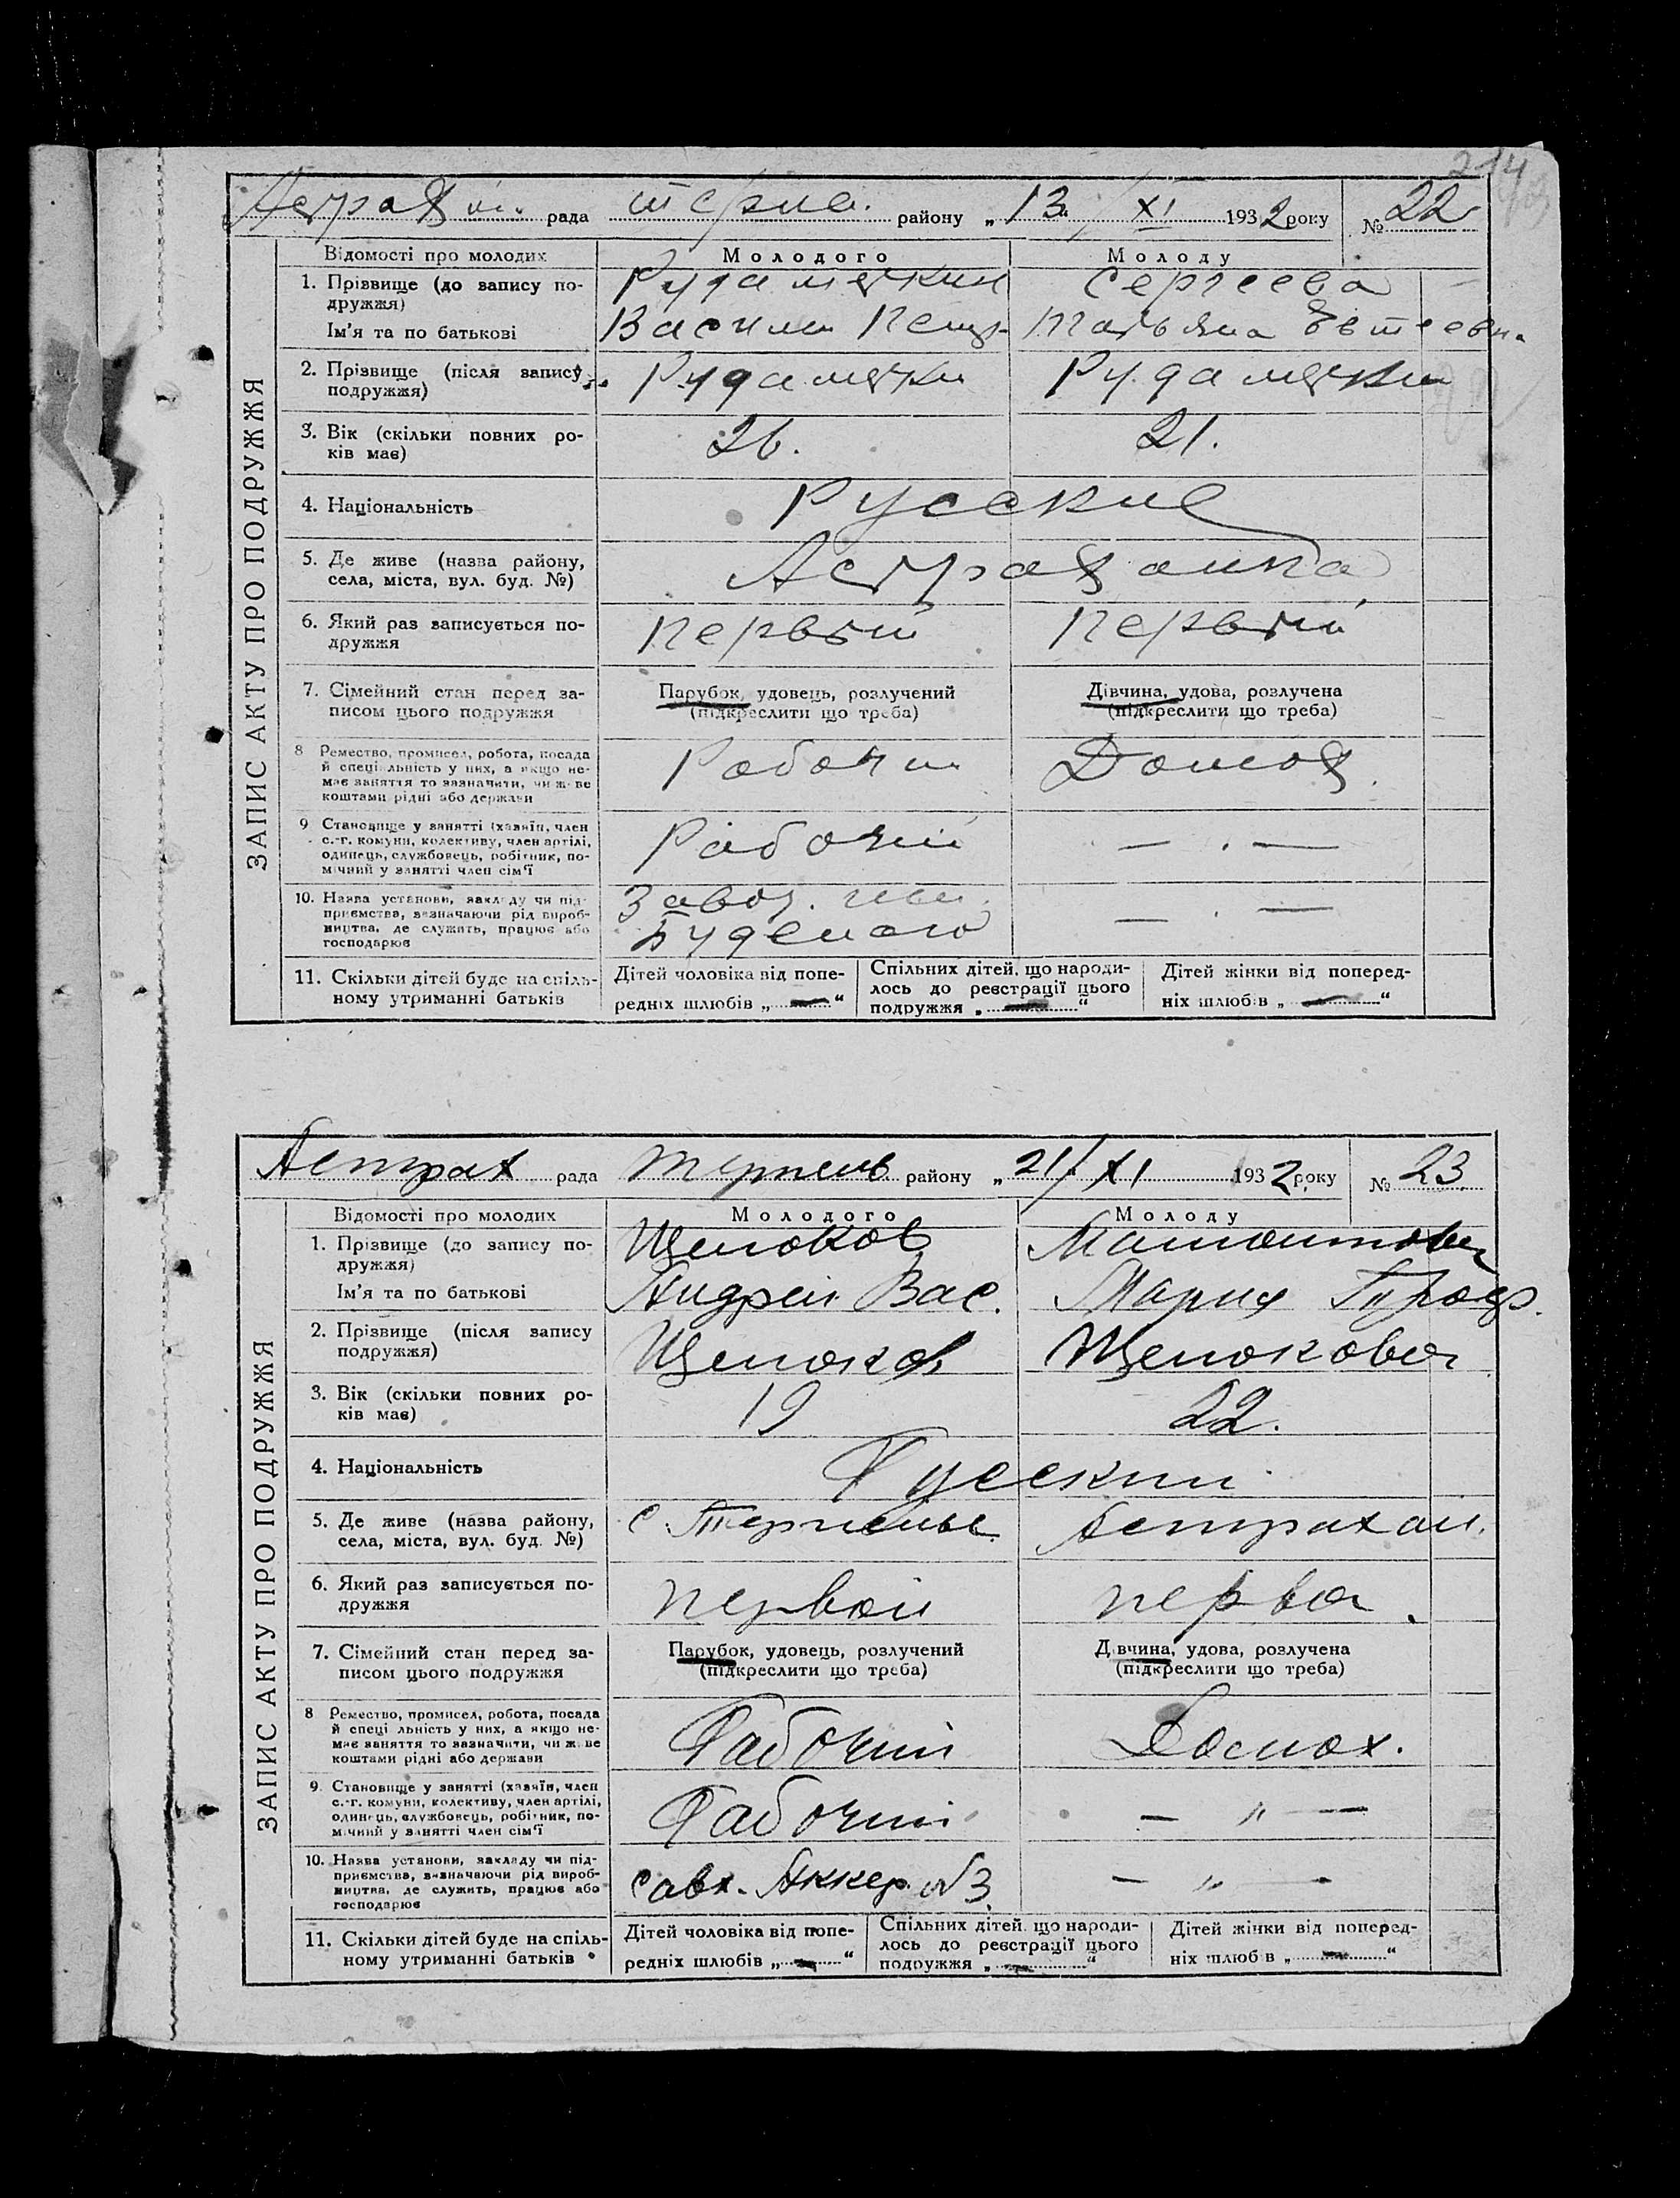 214
Астрахан. рада терпе. району „13“ XI 1932 року № 22
ЗАПИС АКТУ ПРО ПОДРУЖЖЯ
Відомості про молодих Молодого Молоду
1. Прізвище (до запису по- Рудаметкин Сергеева
дружжя)
Ім'я та по батькові Васили Петр. Татьяна
2. Прізвище (після запису Рудаметки Рудаметкин
подружжя)
3. Вік (скільки повних ро- 26. 21.
ків має)
4. Національність Русские
5. Де живе (назва району, Астраханка
села, міста, вул. буд. №)
6. Який раз записується по- Первый Первый
дружжя
7. Сімейний стан перед за- Парубок, удовець, розлучений Дівчина, удова, розлучена
писом цього подружжя (підкреслити що треба) (підкреслити що треба)
8 Ремество, промисел, робота, посада Рабочи Домох.
й спеціальність у них, а якщо не-
має заняття то зазначити, чи живе
коштами рідні або держави
9 Становище у занятті (хазяїн, член Рабочий — . —
с.-г. комуни, колективу, член артілі,
одинець, службовець, робітник, по-
мічний у занятті член сім'ї
10. Назва установи, закладу чи під- Завод. им. — . —
приємства, зазначаючи рід вироб- Буденого
ництва, де служить, працює або
господарює
11. Скільки дітей буде на спіль- Дітей чоловіка від попе- Спільних дітей, що народи- Дітей жінки від поперед-
ному утриманні батьків редніх шлюбів „—“ лось до реєстрації цього ніх шлюбів „—“
подружжя „—“
Астрах рада Терпень району „21/“ XI 1932 року № 23
ЗАПИС АКТУ ПРО ПОДРУЖЖЯ
Відомості про молодих Молодого Молоду
1. Прізвище (до запису по- Щелоков
дружжя)
Ім'я та по батькові Андрей Вас. Мария
2. Прізвище (після запису Щелоков Щелокова
подружжя)
3. Вік (скільки повних ро- 19 22.
ків має)
4. Національність Русский
5. Де живе (назва району, с. Терпенье Астрахан.
села, міста, вул. буд. №)
6. Який раз записується по- первой перва.
дружжя
7. Сімейний стан перед за- Парубок, удовець, розлучений Дівчина, удова, розлучена
писом цього подружжя (підкреслити що треба) (підкреслити що треба)
8 Ремество, промисел, робота, посада Рабочий
й спеціальність у них, а якщо не-
має заняття то зазначити, чи живе
коштами рідні або держави
9. Становище у занятті (хазяїн, член Рабочий — „ —
с.-г. комуни, колективу, член артілі,
одинець, службовець, робітник, по-
мічний у занятті член сім'ї
10. Назва установи, закладу чи під- Савх. Аккер. №3 — „ —
приємства, зазначаючи рід вироб-
ництва, де служить, працює або
господарює
11. Скільки дітей буде на спіль- Дітей чоловіка від попе- Спільних дітей, що народи- Дітей жінки від поперед-
ному утриманні батьків редніх шлюбів „—“ лось до реєстрації цього ніх шлюбів „—“
подружжя „—“